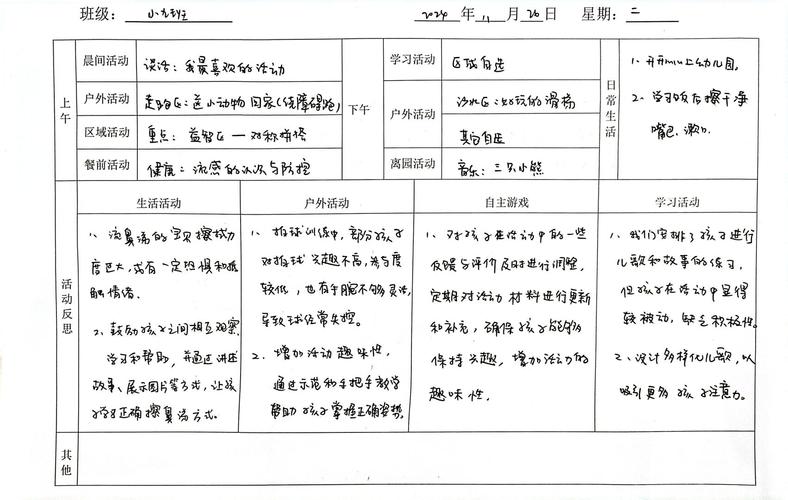 班级: 小九班 2024 年 11 月 26 日 星期: 二
上午
晨间活动 谈话:我最喜欢的活动
户外活动 走跑区:送小动物回家(绕障碍跑)
区域活动 重点:益智区—对称拼搭
餐前活动 健康:流感的认识与防控
下午
学习活动 区域自选
户外活动 沙水区:好玩的滑梯
其它自选
离园活动 音乐:三只小熊
日常生活
1、开开心心上幼儿园。
2、学习饭后擦干净
嘴巴、漱口
活动反思
生活活动
1、流鼻涕的宝贝擦拭力
度过大,或有一定恐惧和抵
触情绪。
2、鼓励孩子之间相互观察
学习和帮助,并通过讲述
故事、展示图片等方式,让孩
子学习正确擦鼻涕方式。
户外活动
1、拍球训练中,部分孩子
对拍球兴趣不高,参与度
较低,也有手腕不够灵活,
导致球经常失控。
2、增加活动趣味性,
通过示范和手把手教学
帮助孩子掌握正确姿势。
自主游戏
1、对孩子在活动中的一些
反馈与评价及时进行调整,
定期对活动材料进行更新
和补充,确保孩子能够
保持兴趣,增加活动的
趣味性。
学习活动
1、我们安排了孩子进行
儿歌和故事的练习,
但孩子在活动中显得
较被动,缺乏积极性。
2、设计多样化儿歌,以
吸引更多孩子注意力。
其他